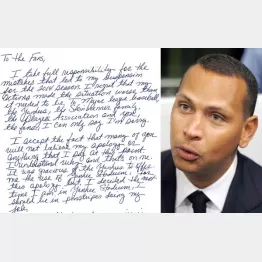 To the Fans,
I take full responsibility for the
mistakes that led to my suspension
for the 2014 season. I regret that my
actions made the situation worse than
it needed to be. To Major League Baseball,
the Yankees, the Steinbrenner family,
the Players Association and you,
the fans, I can only say I'm sorry.
I accept the fact that many of you
will not believe my apology or
anything that I say at this point.
I understand why and that's on me.
It was gracious of the Yankees to offer
me the use of Yankee Stadium for
this apology but I decided the next
time I am in Yankee Stadium, I
should be in pinstripes doing my
job.